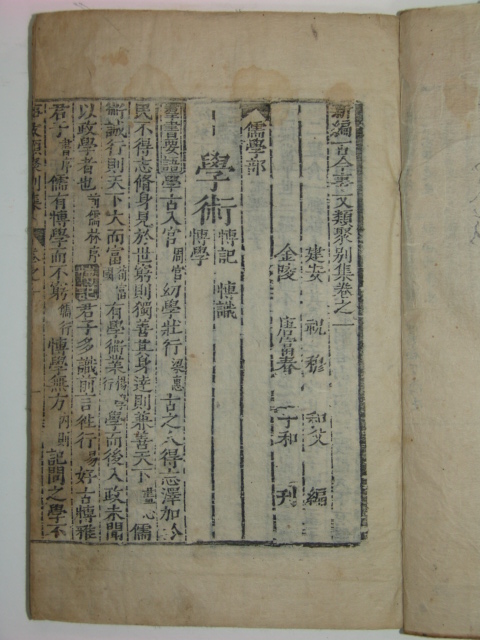 新編古今事文類聚別集卷之一
建安 祝穆 和父 編
金陵 唐富春 子和 刊
儒學部
學術 博記 博識
博學
羣書要語學古入官周官幼學壯行梁惠古之人得志澤加於
民不得志脩身見於世窮則獨善其身達則兼善天下盡心儒
術誠行則天下大而富荀富有學術業行學而後入政未聞
以政學者也前儒林序君子多識前言徃行易好古博雅
君子書序儒有博學而不窮儒行博學無方內則記問之學不